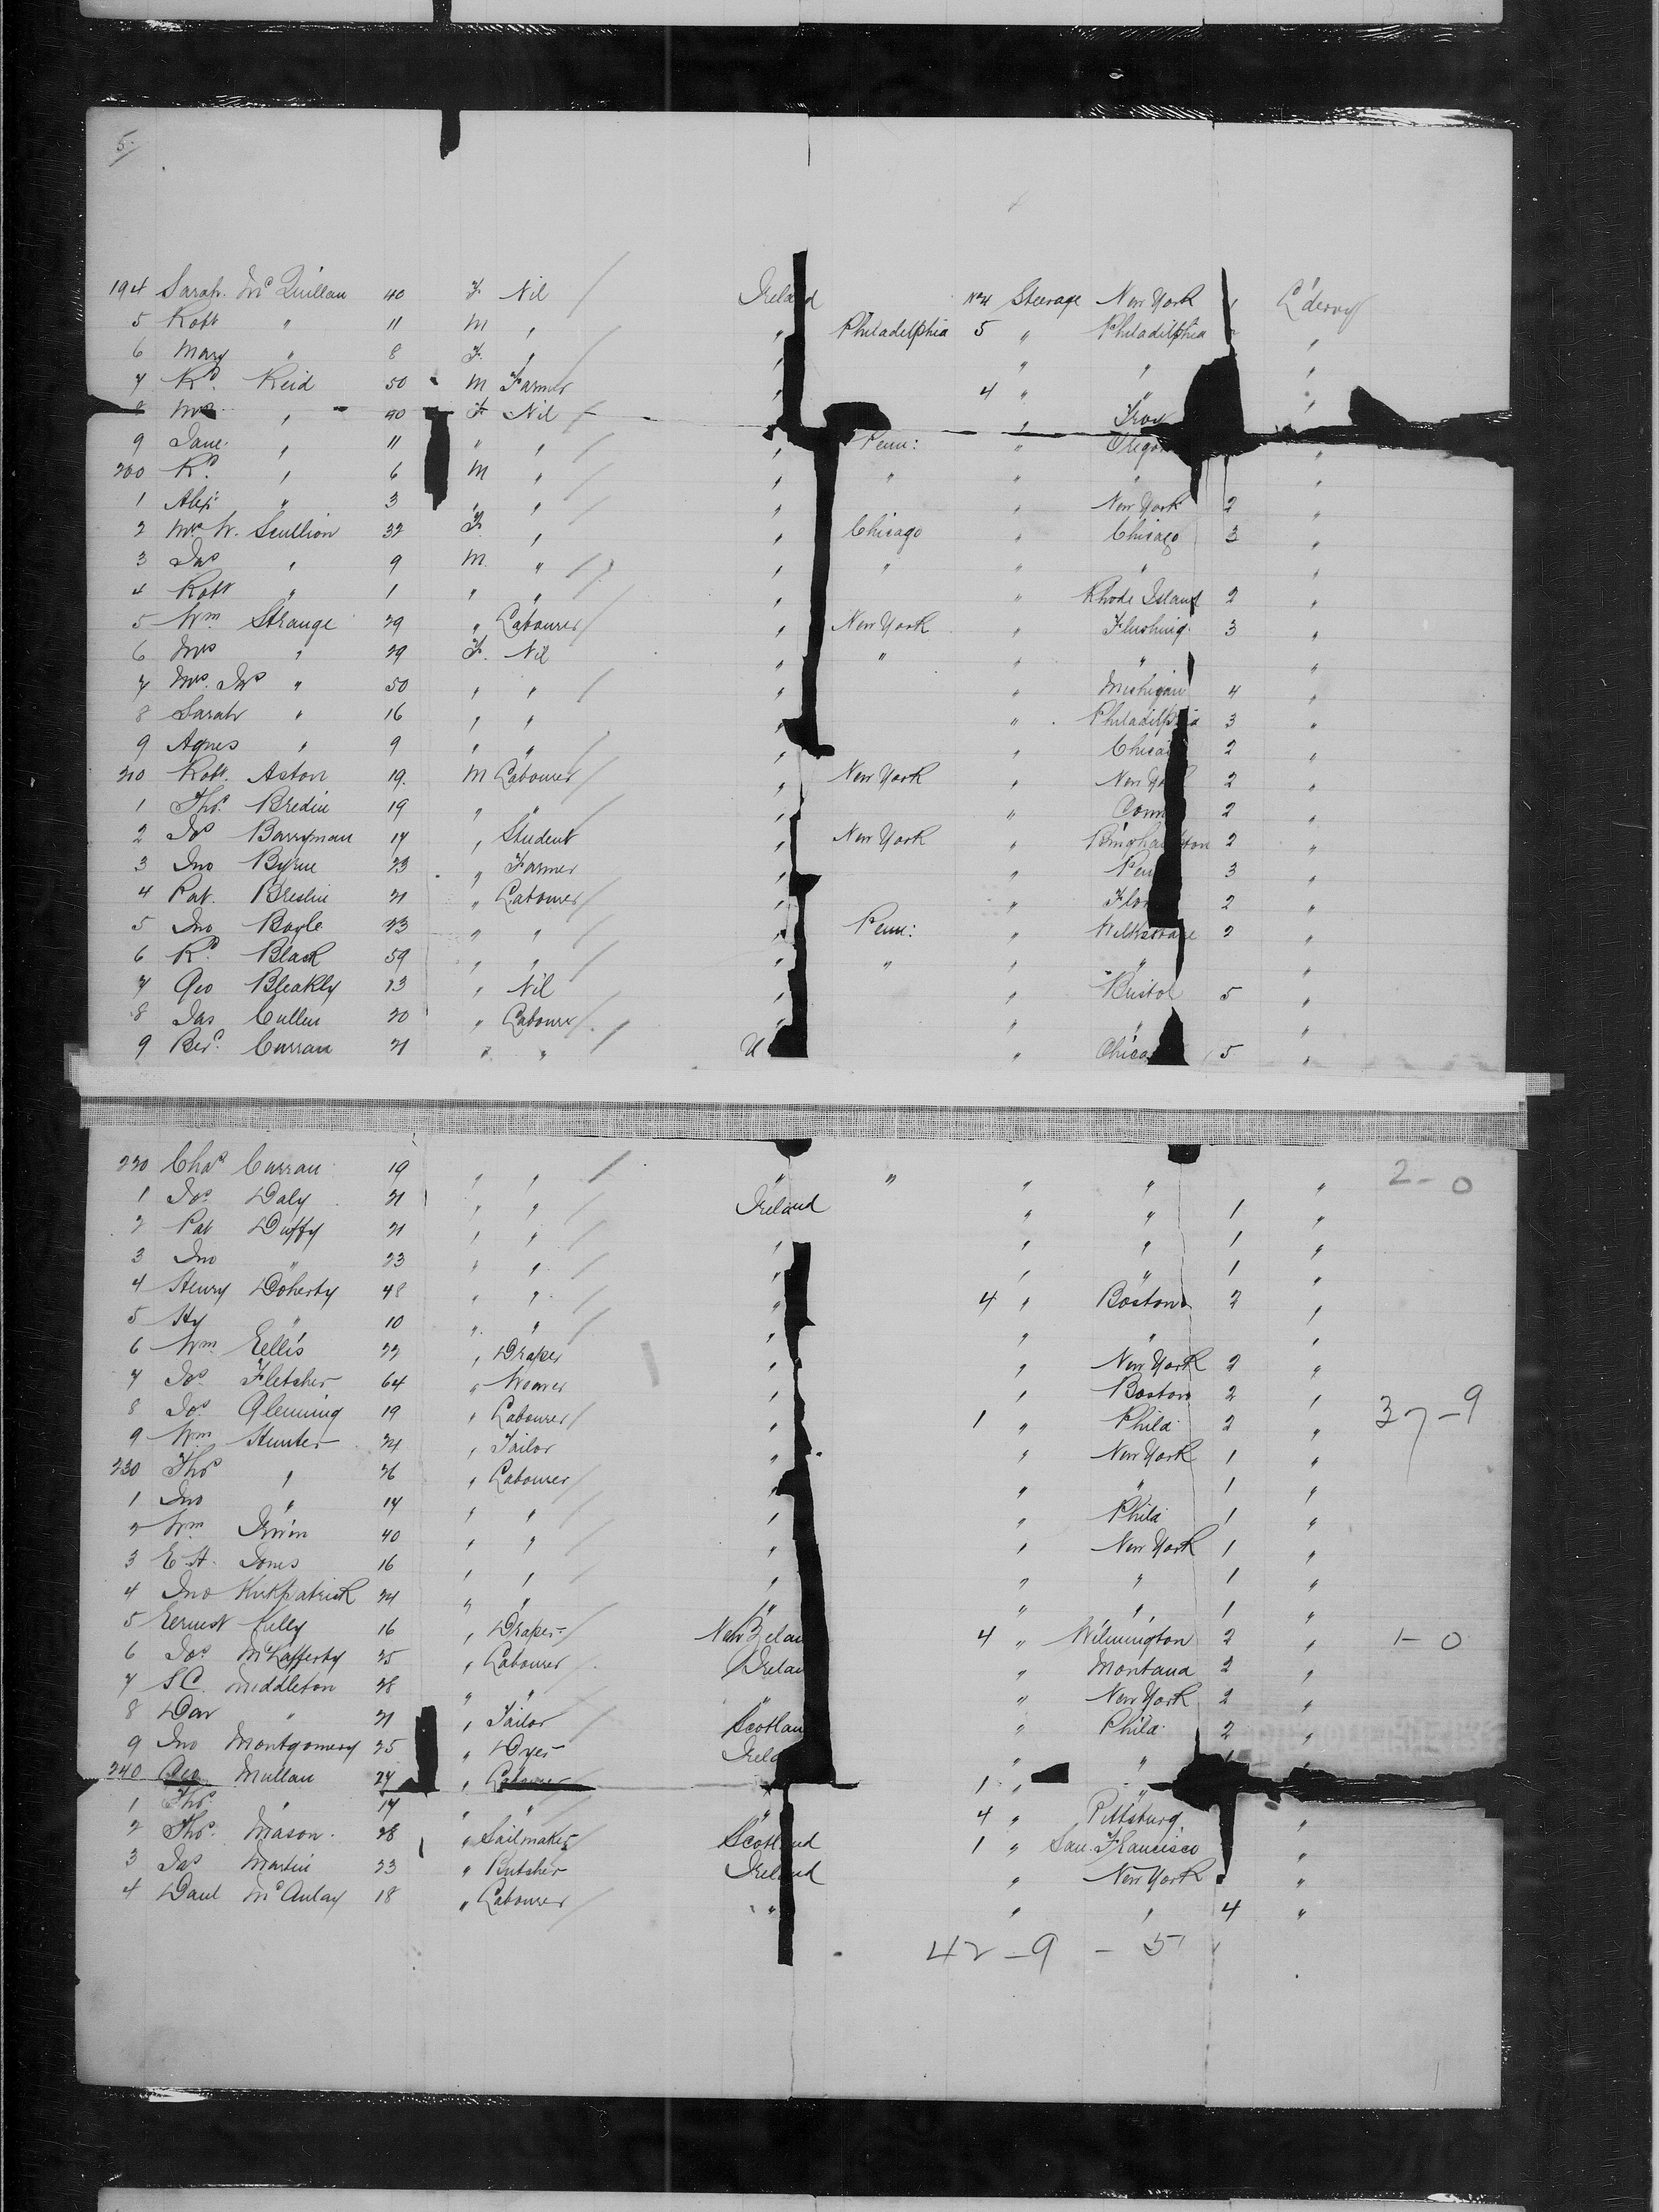 5.
194 Sarah Mc Quillan 40 F Nil / Ireland No 4 Steerage New York 1 L'derry
5 Robt " 11 M " / " Philadelphia 5 " Philadelphia "
6 Mary " 8 F. " / " " " "
7 Rd. Reid 50 M Farmer " 4 " " "
8 Mrs " 40 F Nil / " Troy "
9 Jane " 11 " " / " Penn: " Oregon "
200 Rd. " 6 M " / " " " " "
1 Alex " 3 " " / " " New York 2 "
2 Mrs W. Scullion 32 F. " " Chicago " Chicago 3 "
3 Jas " 9 M. " / " " " " "
4 Robt " 1 " " " " Rhode Island 2 "
5 Wm Strange 29 " Labourer / " New York " Flushing 3 "
6 Mrs " 29 F. Nil " " " " "
7 Mrs. Jas " 50 " " / " " Michigan 4 "
8 Sarah " 16 " " " " Philadelphia 3 "
9 Agnes " 9 " " / " " Chica 2 "
210 Robt. Aston 19. M Labourer / " New York " New Yo 2 "
1 Thos. Bredin 19 " " / " " Conn 2 "
2 Jos Barryman 17 " Student " New York " Binghampton 2 "
3 Jno Byrne 23 " Farmer " " Pen 3 "
4 Pat. Breslin 21 " Labourer / " " Flo 2 "
5 Jno Boyle 23 " " / " Penn: " Wilksbarre 2 "
6 Rd. Black 59 " " / " " " " "
7 Geo Bleakly 13 " Nil " " Bristol 5 "
8 Jas Cullen 20 " Labourer / " " " "
9 Berd. Curran 21 " " / U " Chica 5 "
220 Chas Curran 19 " " / " " " " " 2-0
1 Jos. Daly 21 " " / Ireland " " 1 "
2 Pat Duffy 21 " " / " " " 1 "
3 Jno " 23 " " / " " " 1 "
4 Henry Doherty 48 " " / " 4 " Boston 2 "
5 Hy " 10 " " / " " " "
6 Wm Ellis 22 " Draper " " New York 2 "
7 Jos. Fletcher 64 " Weaver " " Boston 2 "
8 Jos. Glenning 19 " Labourer / " 1 " Phila 2 " 37-9
9 Wm Hunter 24 " Tailor " " New York 1 "
230 Thos " 26 " Labourer / " " " 1 "
1 Jno " 14 " " / " " Phila 1 "
2 Wm Irwin 40 " " / " " New York 1 "
3 E H. Jones 16 " " / " " " 1 "
4 Jno Kirkpatrick 24 " " / " " " 1 "
5 Ernest Kelly 16 " Draper / New Zelan 4 " Wilmington 2 " 1-0
6 Jos. McLafferty 25 " Labourer Irelan " Montana 2 "
7 S C. Middleton 28 " " " " New York 2 "
8 Dav " 21 " Tailor / Scotlan " Phila. 2 "
9 Jno Montgomery 25 " Dyer Irela " " "
240 Geo Mullan 24 " Labourer 1 " "
1 Thos. " 17 " " " 4 " Pittsburg "
2 Thos. Mason 28 " Sailmaker / Scotland 1 " San Francisco "
3 Jas Martin 23 " Butcher Ireland " New York "
4 Danl McAulay 18 " Labourer / " " " 4 "
42-9-5